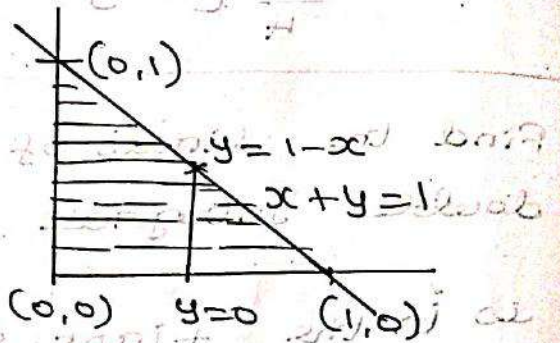 (0,1)
y=1-x
x+y=1
(0,0) y=0 (1,0)